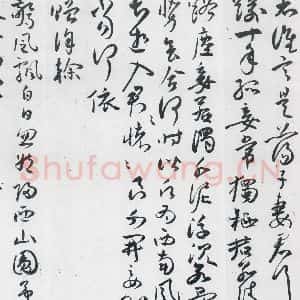 誰言是蕩子妻君行
踰十年孤妾常獨棲君若清
路塵妾若濁水泥浮沉各異
勢會合何時諧願為西南風
長逝入君懷良不開賤妾
當何依
贈徐幹
驚風飄白日忽然歸西山圓景
Shufawang.CN